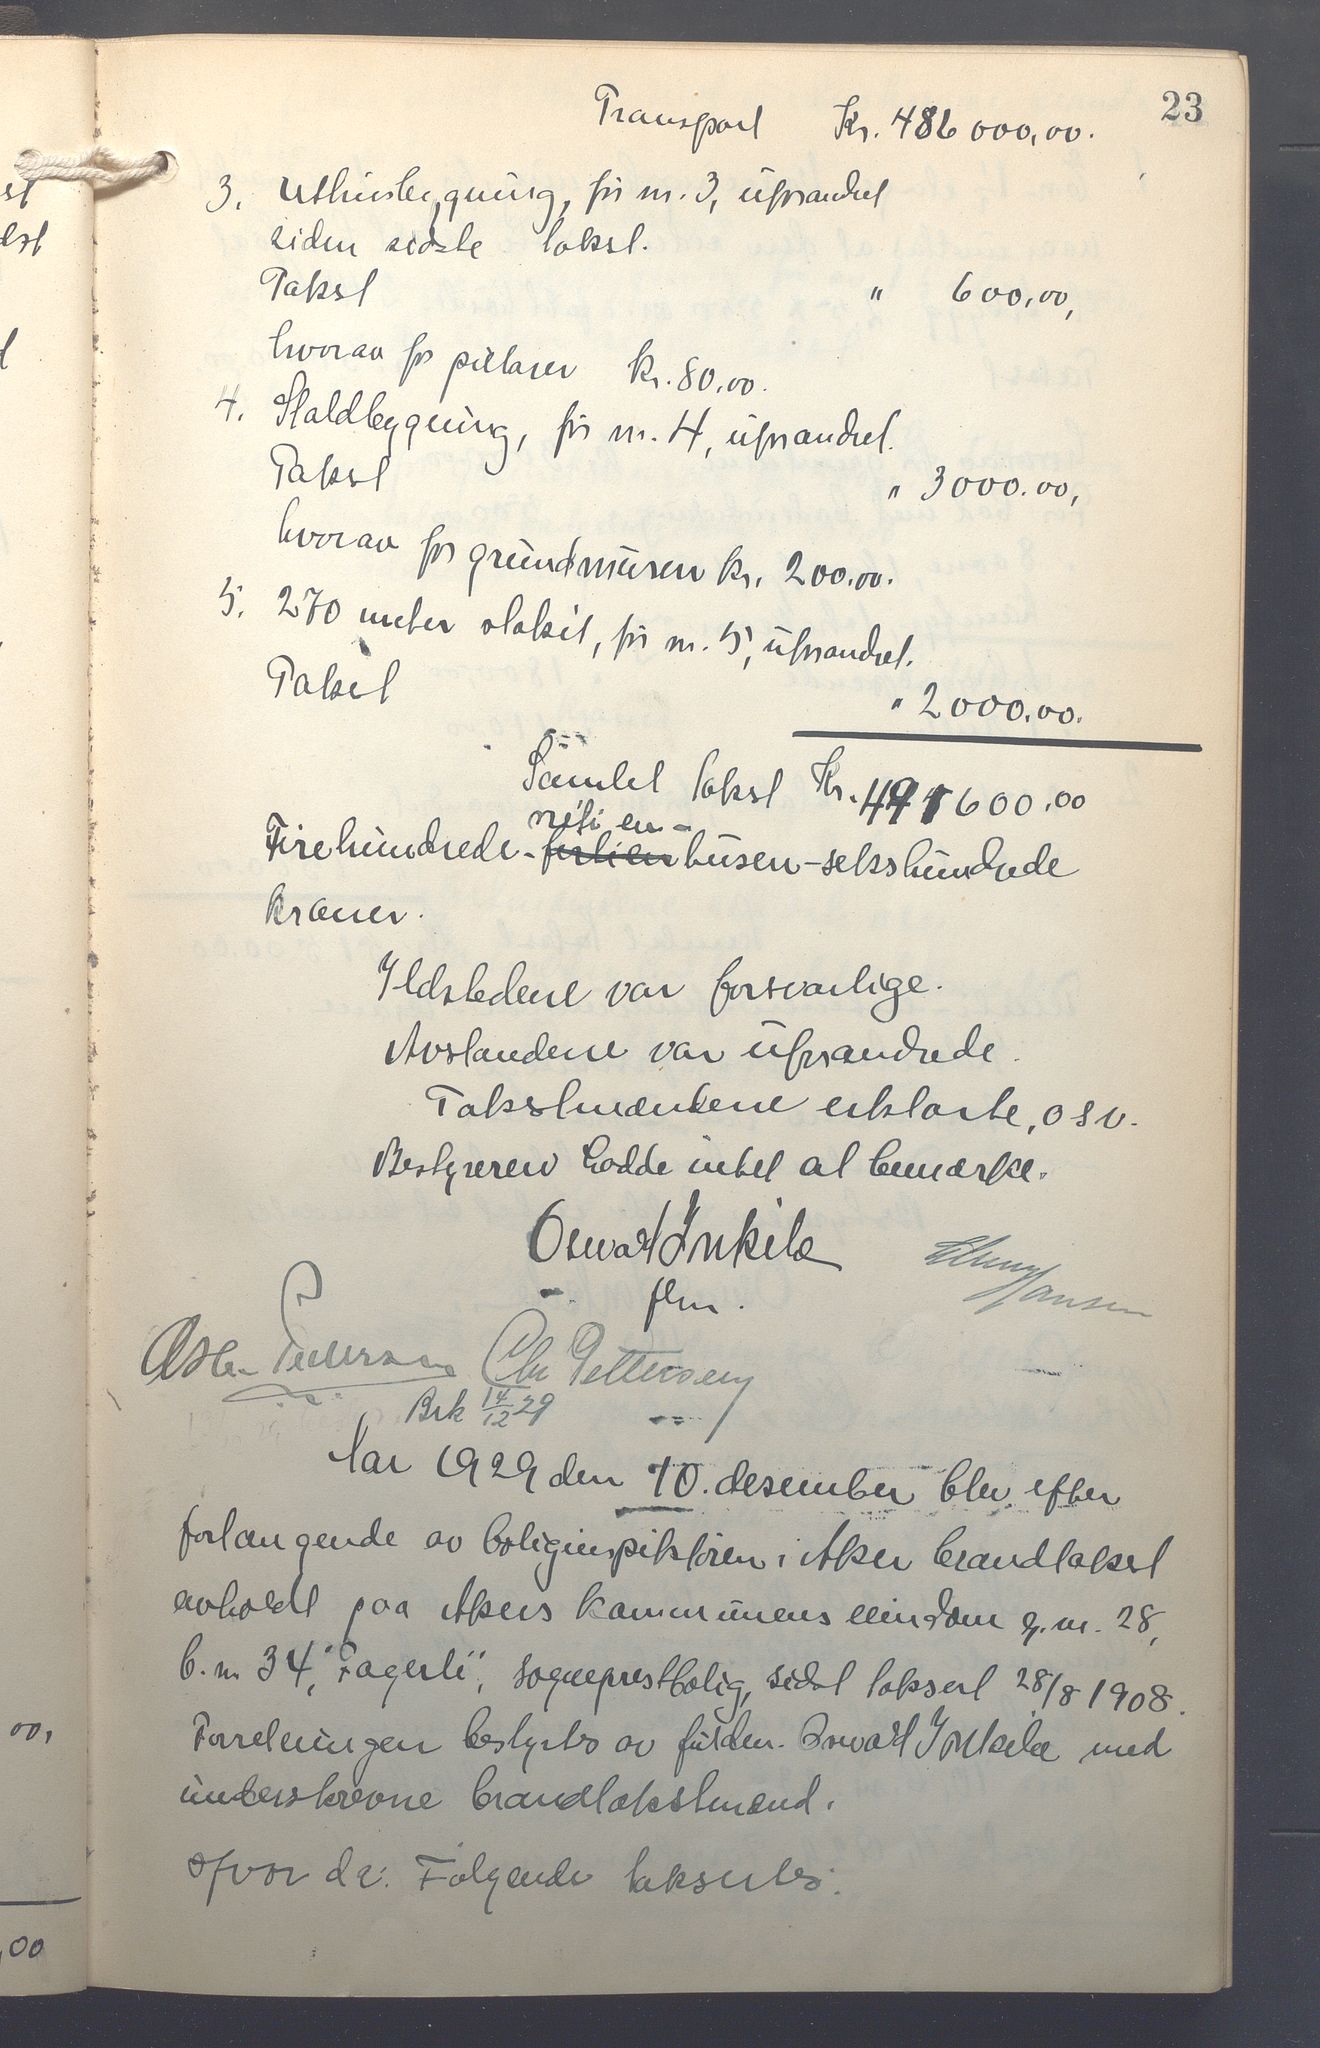 23
Transport Kr. 486 000,00.
3. Uthusbygning, før nr. 3, uforandret
siden sidste takst.
Takst " 600,00,
hvorav for pillarer kr. 80,00.
4. Staldbygning, før nr. 4, uforandret.
Takst " 3000.00,
hvorav for grundmuren kr. 200.00.
5. 270 meter stakit, før nr. 5, uforandret.
Takst " 2000.00.
Samlet takst Kr. 491 600.00
niti en-
Firehundrede-førtien tusen-sekshundrede
kroner.
Ildstedene var forsvarlige.
Avstandene var uforandrede.
Takstmændene erklærte, osv.
Bestyreren hadde intet at bemærke.
Oswald Inkilæ
fm.
Hansen
Pedersen Chr Pettersen
Brk 14/12 29
Aar 1929 den 10. desember blev efter
forlangende av boliginspektøren i Aker brandtakst
avholdt paa Akers kommunens eiendom g. nr. 28,
b. nr 34, "Fagerli", sogneprestbolig, sidst taksert 28/8 1908.
Forretningen bestyrtes av fuldm. Oswald Inkilæ med
underskrevne brandtakstmænd.
Hvorda: Følgende taksertes:
st
00,
,00